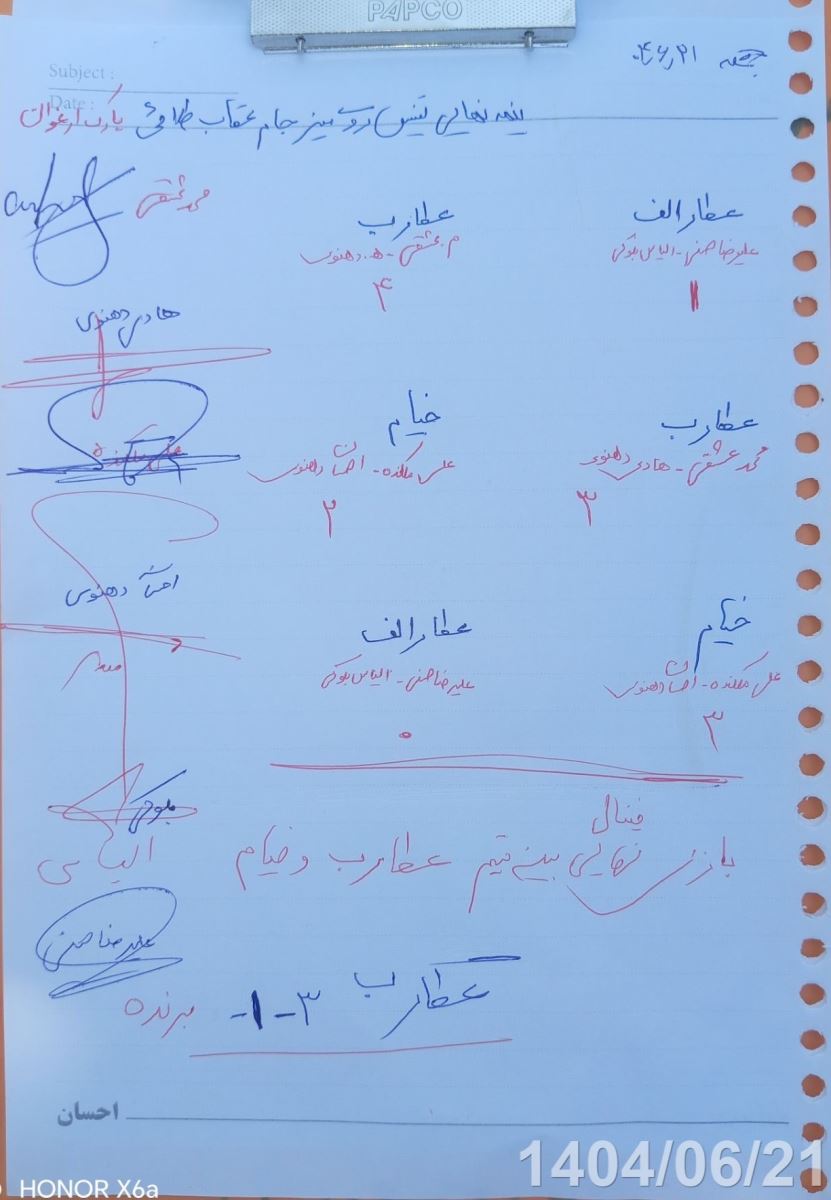 PAPCO
جمعه ۰۴٫۶٫۲۱
Subject :
Date :
نیمه نهایی تنیس روی میز جام عقاب طلایی پارک ارغوان
عطار الف
علیرضا صنمی - الیاس بلوکی
۱
عطار ب
م. عشقی - ه. دهنوی
۴
محمد عشقی
هادی دهنوی
عطار ب
محمد عشقی - هادی دهنوی
۳
خیام
علی ملکنده - احسان دهنوی
۲
علی ملکنده
خیام
علی ملکنده - احسان دهنوی
۳
عطار الف
علیرضا صنمی - الیاس بلوکی
۰
احسان دهنوی
فینال
بازی نهایی بین تیم عطار ب و خیام
بلوکی
الیاس
علیرضا صنمی
عطار ب ۳-۱- برنده
احسان
1404/06/21
HONOR X6a